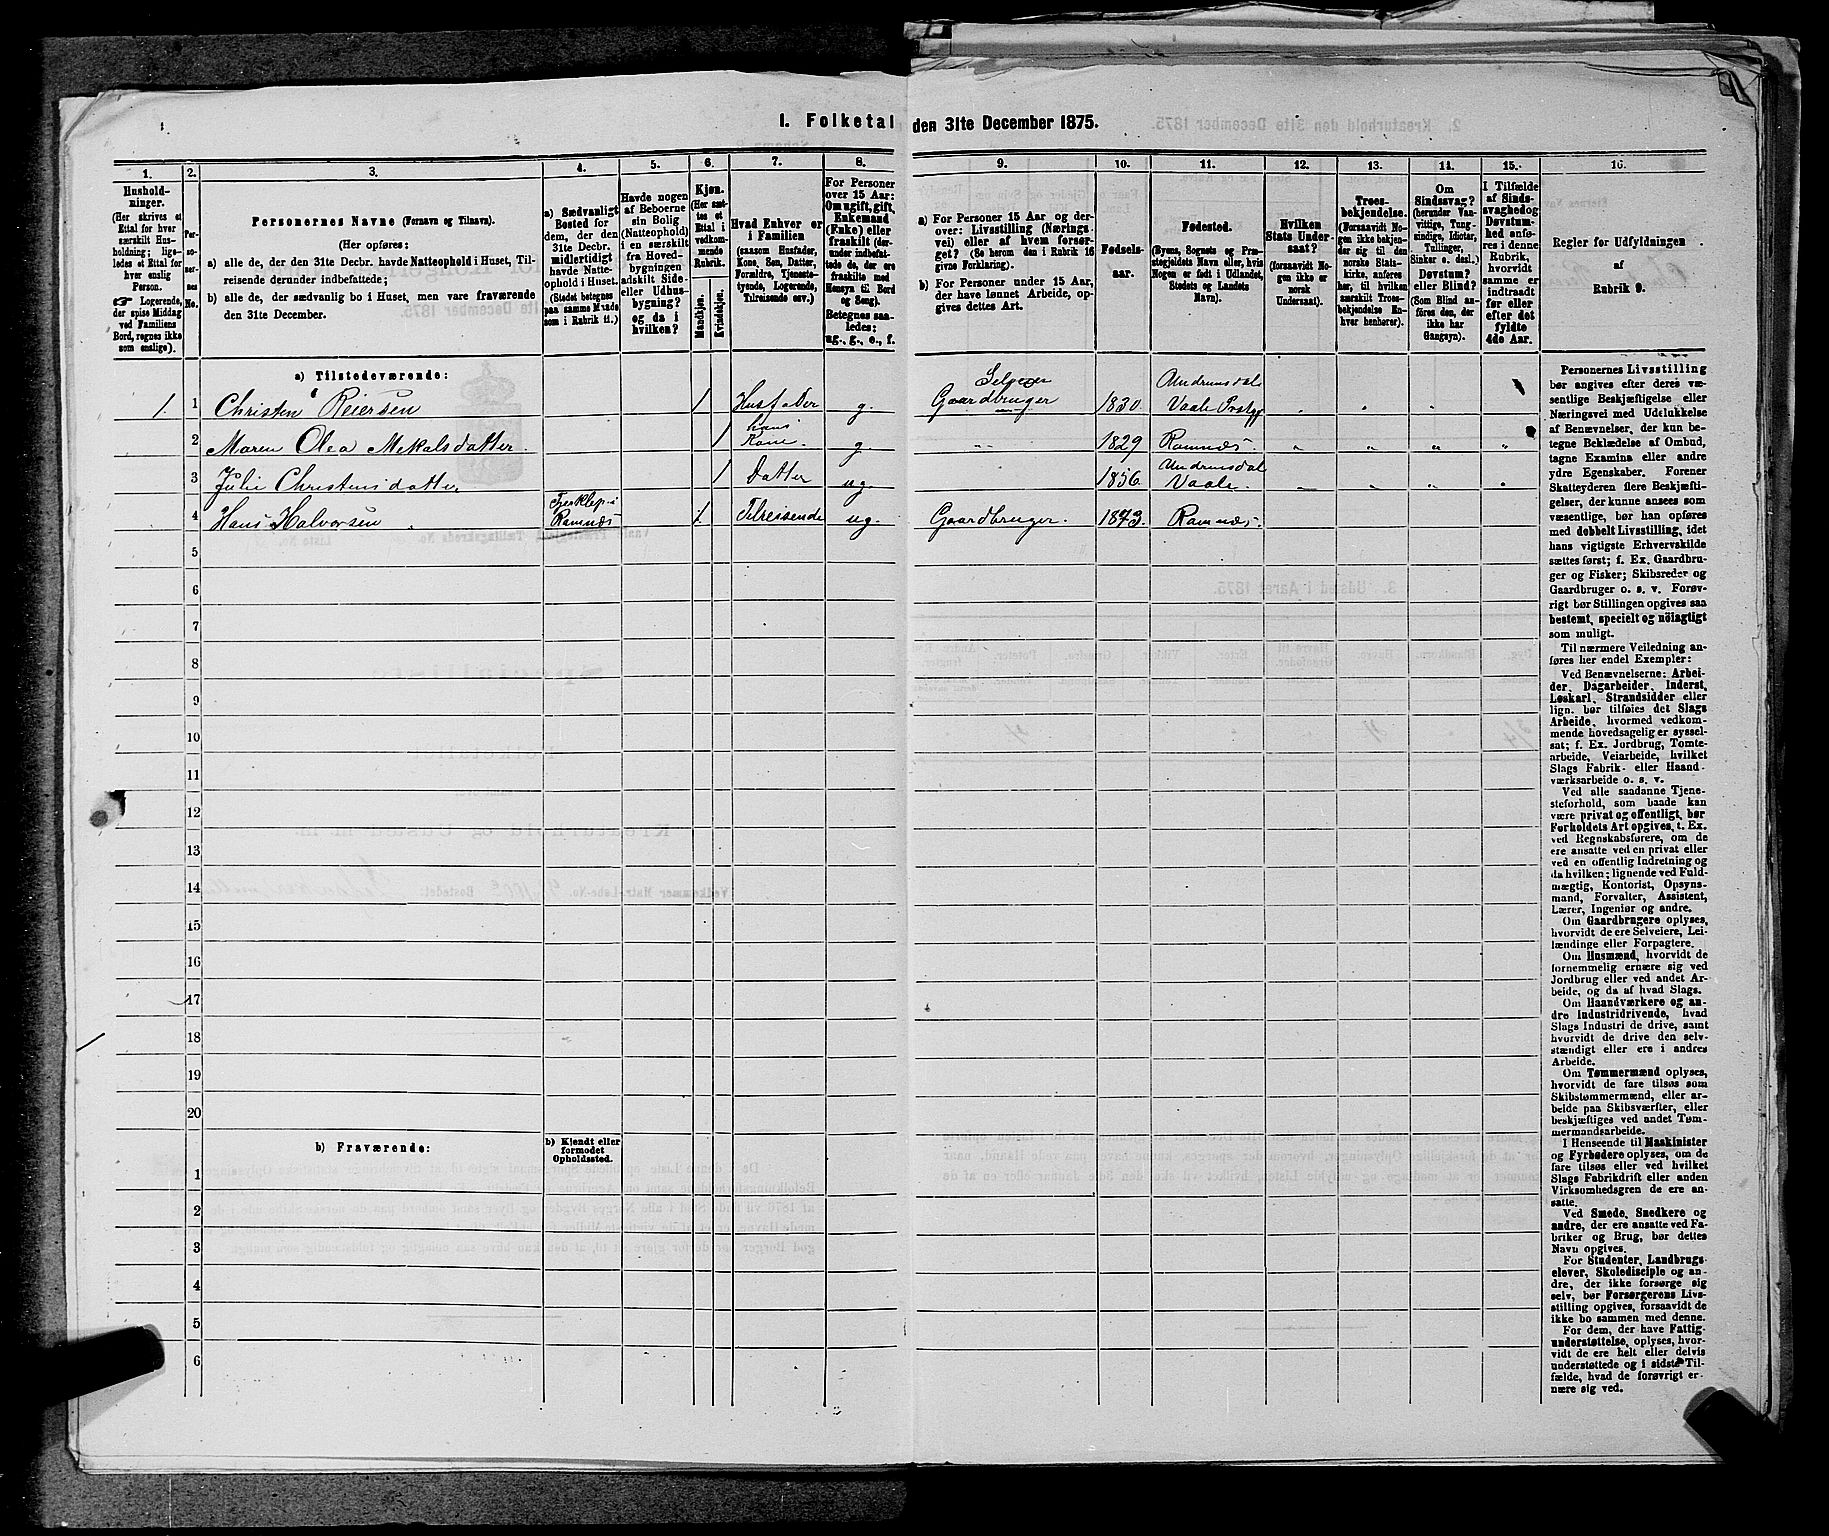 1. Folketal den 31te December 1875.
1.
Hushold-
ninger.
(Her skrives et
Ettal for hver
særskilt Hus-
holdning; lige-
ledes et Ettal for
hver enslig
Person.
☞ Logerende,
der spise Middag
ved Familiens
Bord, regnes ikke
som enslige).
2.
Per-
so-
ner-
nes
No.
3.
Personernes Navne (Fornavn og Tilnavn).
(Her opføres:
a) alle de, der den 31te Decbr. havde Natteophold i Huset, Til-
reisende derunder indbefattede;
b) alle de, der sædvanlig bo i Huset, men vare fraværende
den 31te December.
4.
a) Sædvanligt
Bosted for
dem, der den
31te Decbr.
midlertidigt
havde Natte-
ophold i Huset.
(Stedet betegnes
paa samme Maade
som i Rubrik 11.)
5.
Havde nogen
af Beboerne
sin Bolig
(Natteophold)
i en særskilt
fra Hoved-
bygningen
adskilt Side-
eller Udhus-
bygning?
og da i
hvilken?
6.
Kjøn.
(Her sæt-
tes et
Ettal i
vedkom-
mende
Rubrik.
Mandkjøn.
Kvindekjøn.
7.
Hvad Enhver er
i Familien
(saasom Husfader,
Kone, Søn, Datter,
Forældre, Tjeneste-
tyende, Logerende,
Tilreisende osv.)
8.
For Personer
over 15 Aar:
Om ugift, gift,
Enkemand
(Enke) eller
fraskilt (der-
under indbefat-
tede de, der ere
fraskilte med
Hensyn til Bord
og Seng).
Betegnes saa-
ledes;
ug., g., e., f.
9.
a) For Personer 15 Aar og der-
over: Livsstilling (Nærings-
vei) eller af hvem forsør-
get? (Se herom den i Rubrik 16
givne Forklaring).
b) For Personer under 15 Aar,
der have lønnet Arbeide, op-
gives dettes Art.
10.
Fødsels-
aar.
11.
Fødested.
(Byens, Sognets og Præ-
stegjeldets Navn eller, hvis
Nogen er født i Udlandet,
Stedets og Landets
Navn).
12.
Hvilken
Stats Under-
saat?
(forsaavidt No-
gen ikke er
norsk
Undersaat).
13.
Troes-
bekjendelse.
(Forsaavidt No-
gen ikke bekjen-
der sig til den
norske Stats-
kirke, anføres
her, til hvilken
særskilt Troes-
bekjendelse En-
hver henhører).
14.
Om
Sindssvag?
(herunder Van-
vittige, Tung-
sindige, Idioter,
Tullinger,
Sinker o. desl.).
Døvstum?
eller Blind?
(Som Blind an-
føres den, der
ikke har
Gangsyn).
15.
I Tilfælde
af Sinds-
svaghed og
Døvstum-
hed anfø-
res i denne
Rubrik,
hvorvidt
samme er
indtraadt
før eller
efter det
fyldte
4de Aar.
16.
Regler for Udfyldningen
af
Rubrik 9.
a) Tilstedeværende:
1. 1 Christen Reiersen 1 Husfader g. Selveier Gaardbruger 1830. Undrumsdal Vaale Prstgj „ „ „
2 Maren Olea Mekalsdatter. 1 hans Kone. g. „ 1829 Ramnæs „ „ „ „
3 Julie Christensdatter. 1 Datter ug. 1856. Undrumsdal Vaale. „ „ „ „
4 Hans Halvorsen Ramnæs 1 Tilreisende ug. Gaardbruger. 1843. Ramnæs.
5
6
7
8
9
10
11
12
13
14
15
16
17
18
19
20
b) Fraværende:
b) Kjendt eller
formodet
Opholdssted.
1
2
3
4
5
6
Personernes Livsstilling
bør angives efter deres væ-
sentlige Beskjæftigelse eller
Næringsvei med Udelukkelse
af Benævnelser, der kun be-
tegne Beklædelse af Ombud,
tagne Examina eller andre
ydre Egenskaber. Forener
Skatteyderen flere Beskjæfti-
gelser, der kunne ansees som
væsentlige, bør han opføres
med dobbelt Livsstilling, idet
hans vigtigste Erhvervskilde
sættes først; f. Ex. Gaardbru-
ger og Fisker; Skibsreder og
Gaardbruger o. s. v. Forøv-
rigt bør Stillingen opgives saa
bestemt, specielt og nöiagtigt
som muligt.
Til nærmere Veiledning an-
føres her endel Exempler:
Ved Benævnelserne: Arbei-
der, Dagarbeider, Inderst,
Løskarl, Strandsidder eller
lign. bør tilføies det Slags
Arbeide, hvormed vedkom-
mende hovedsagelig er syssel-
sat; f. Ex. Jordbrug, Tomte-
arbeide, Veiarbeide, hvilket
Slags Fabrik- eller Haand-
værksarbeide o. s. v.
Ved alle saadanne Tjene-
steforhold, som baade kan
være privat og offentligt, bør
Forholdets Art opgives, t. Ex.
ved Regnskabsførere, om de
ere ansatte ved en privat eller
ved en offentlig Indretning og
da hvilken; lignende ved Fuld-
mægtig, Kontorist, Opsyns-
mand, Forvalter, Assistent,
Lærer, Ingeniør og andre.
Om Gaardbrugere oplyses,
hvorvidt de ere Selveiere, Lei-
lændinge eller Forpagtere.
Om Husmænd, hvorvidt de
fornemmelig ernære sig ved
Jordbrug eller ved andet Ar-
beide, og da af hvad Slags.
Om Haandværkere og an-
dre industridrivende, hvad
Slags Industri de drive, samt
hvorvidt de drive den selv-
stændigt eller ere i andres
Arbeide.
Om Tømmermænd oplyses,
hvorvidt de fare tilsøs som
Skibstømmermænd, eller ar-
beide paa Skibsværfter, eller
beskjæftiges ved andet Tøm-
mermandsarbeide.
I Henseende til Maskinister
og Fyrbødere oplyses, om de
fare tilsøs eller ved hvilket
Slags Fabrikdrift eller anden
Virksomhedsgren de ere an-
satte.
Ved Smede, Snedkere og
andre, der ere ansatte ved Fa-
briker og Brug, bør dettes
Navn opgives.
For Studenter, Landbrugs-
elever, Skoledisciple og an-
dre, der ikke forsørge sig
selv, bør Forsørgerens Livs-
stilling opgives, forsaavidt de
ikke bo sammen med denne.
For dem, der have Fattig-
understøttelse, oplyses, hvor-
vidt de ere helt eller delvis
understøttede og i sidste Til-
fælde, hvad de forøvrigt er-
nære sig ved.